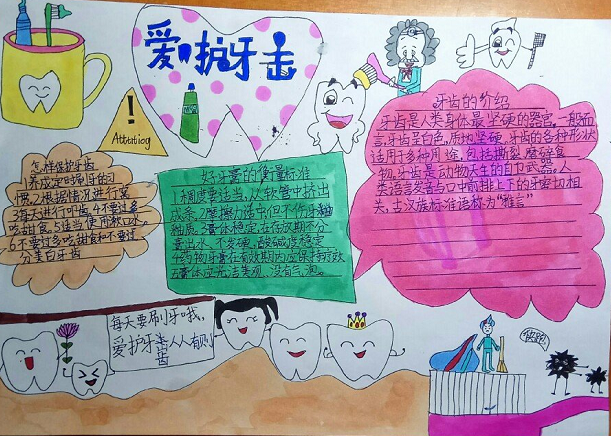 爱护牙齿
Atttatiog
怎样保护牙齿
1养成定时刷牙的习
惯,2.根据情况进行药
3每天进行叩齿,4不要过多
吃甜食,5适当使用漱口水
6.不要过多吃甜食和不要过
分美白牙齿
好牙膏的衡量标准
1.稠度要适当,从软管中挤出
成条,2.摩擦力适中但不伤牙釉
釉质.3膏体稳定,在存放期不分
离出水,不发硬,酸碱度稳定
4药物牙膏在有效期内应保持疗效
5.膏体应光洁美观,没有气泡。
牙齿的介绍
牙齿是人类身体最坚硬的器官,一般而
言,牙齿呈白色,质地坚硬,牙齿的各种形状
适用于多种用途,包括撕裂、磨碎食
物,牙齿是动物天生的自卫武器。人
类语言发音与口中前排上下的牙密切相
关,古汉族标准语称为“雅言”
每天要刷牙哦,
爱护牙齿从人有
齿
快跑!